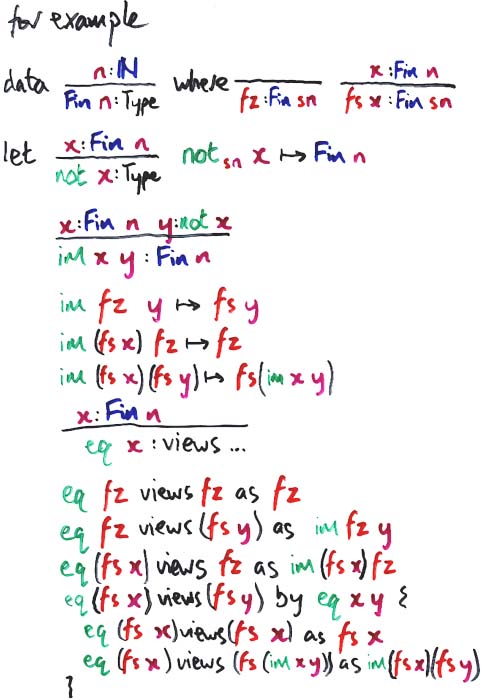 for example
data n:ℕ / Fin n:Type where / fz:Fin sn x:Fin n / fs x:Fin sn
let x:Fin n / not x:Type not sn x ↦ Fin n
x:Fin n y:not x
im x y : Fin n
im fz y ↦ fs y
im (fs x) fz ↦ fz
im (fs x) (fs y) ↦ fs (im x y)
x:Fin n
eq x : views ...
eq fz views fz as fz
eq fz views (fs y) as im fz y
eq (fs x) views fz as im (fs x) fz
eq (fs x) views (fs y) by eq x y {
eq (fs x) views (fs x) as fs x
eq (fs x) views (fs (im x y)) as im (fs x) (fs y)
}